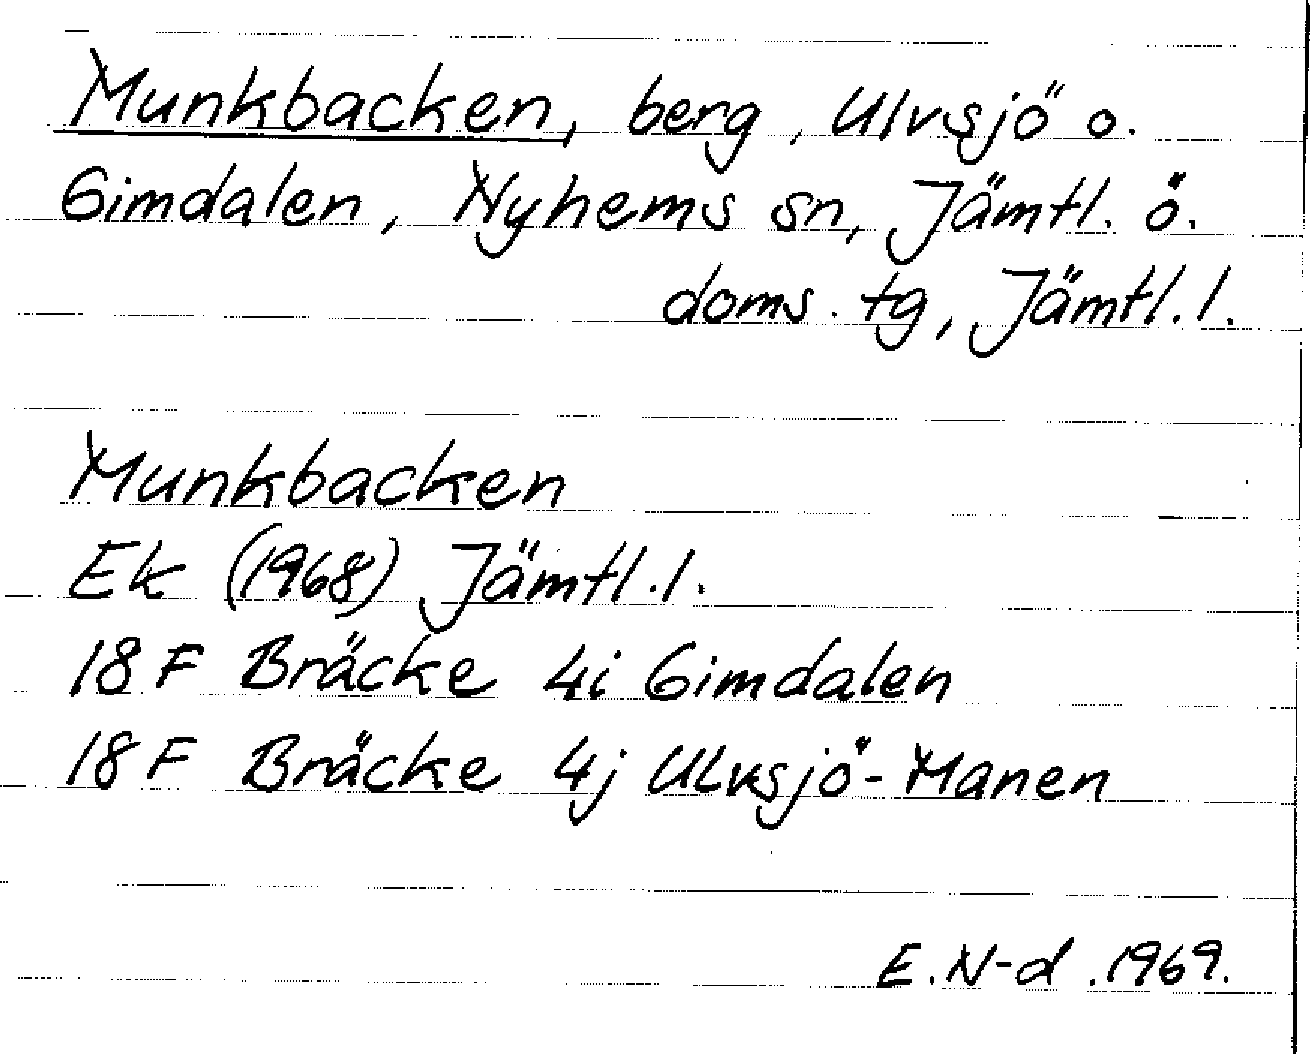 Munkbacken, berg, Ulvsjö o.
Gimdalen, Nyhems sn, Jämtl. ö.
doms. tg, Jämtl. l.
Munkbacken
Ek (1968) Jämtl. l.
18 F Bräcke 4i Gimdalen
18 F Bräcke 4j Ulvsjö-Manen
E. N-d. 1969.